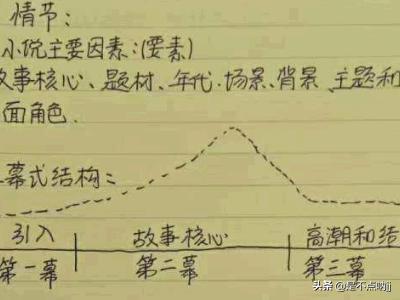 情节:
小说主要因素:(要素)
故事核心、题材、年代.场景、背景、主题和
面角色.
幕式结构:
引入 故事核心 高潮和结
第一幕 第二幕 第三幕
头条 @是不点哟jj